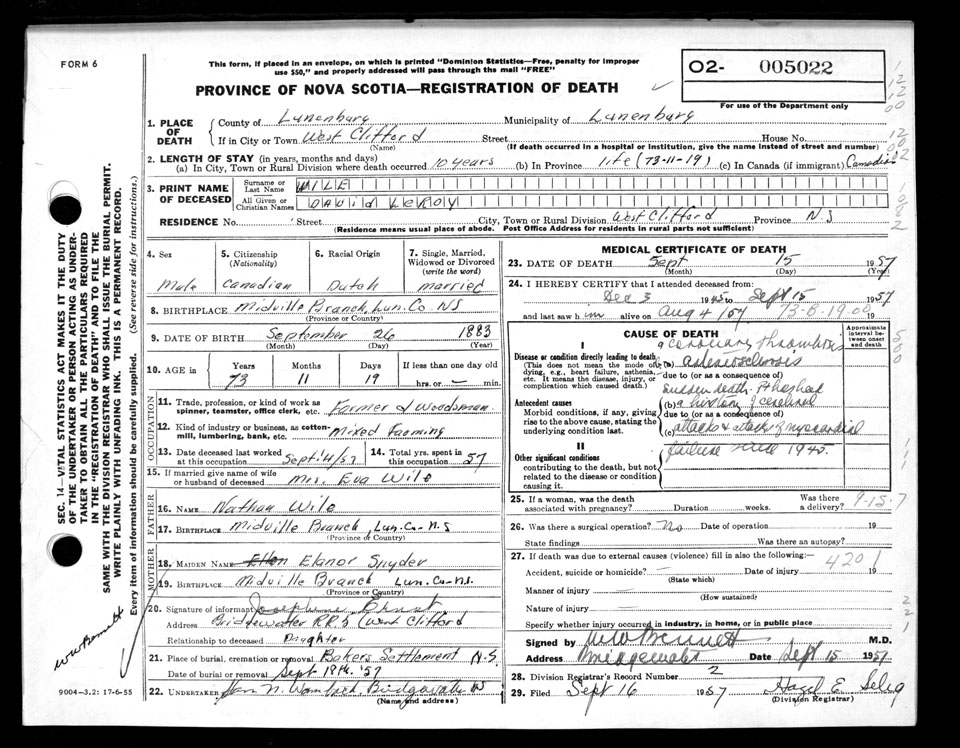 FORM 6
This form, if placed in an envelope, on which is printed "Dominion Statistics—Free, penalty for improper
use $50," and properly addressed will pass through the mail "FREE"
O2- 005022
For use of the Department only
PROVINCE OF NOVA SCOTIA—REGISTRATION OF DEATH
1. PLACE OF DEATH
County of Lunenburg Municipality of Lunenburg
If in City or Town West Clifford Street House No.
(Name) (If death occurred in a hospital or institution, give the name instead of street and number)
2. LENGTH OF STAY (in years, months and days)
(a) In City, Town or Rural Division where death occurred 10 years (b) In Province life (73-11-19) (c) In Canada (if immigrant) Canadian
3. PRINT NAME OF DECEASED
Surname or Last Name WILE
All Given or Christian Names DAVID LEROY
RESIDENCE No. Street City, Town or Rural Division West Clifford Province N.S
(Residence means usual place of abode. Post Office Address for residents in rural parts not sufficient)
4. Sex
Male
5. Citizenship (Nationality)
Canadian
6. Racial Origin
Dutch
7. Single, Married, Widowed or Divorced (write the word)
married
8. BIRTHPLACE Midville Branch, Lun. Co NS
(Province or Country)
9. DATE OF BIRTH September 26 1883
(Month) (Day) (Year)
10. AGE in
Years Months Days If less than one day old
73 11 19 hrs. or — min.
OCCUPATION
11. Trade, profession, or kind of work as
spinner, teamster, office clerk, etc. Farmer & Woodsman
12. Kind of industry or business, as cotton-
mill, lumbering, bank, etc. Mixed Farming
13. Date deceased last worked
at this occupation Sept. 14/57
14. Total yrs. spent in
this occupation 57
15. If married give name of wife
or husband of deceased Mrs. Eva Wile
FATHER
16. NAME Nathan Wile
17. BIRTHPLACE Midville Branch, Lun. Co. N.S
(Province or Country)
MOTHER
18. MAIDEN NAME Ellen Elanor Snyder
19. BIRTHPLACE Midville Branch Lun. Co. N.S.
(Province or Country)
20. Signature of informant Josephine Ernst
Address Bridgewater R.R.5 (West Clifford
Relationship to deceased Daughter
21. Place of burial, cremation or removal Bakers Settlement N.S.
Date of burial or removal Sept 18th. '57
22. UNDERTAKER Bridgewater NS
(Name and address)
MEDICAL CERTIFICATE OF DEATH
23. DATE OF DEATH Sept 15 1957
(Month) (Day) (Year)
24. I HEREBY CERTIFY that I attended deceased from:
Dec 3 1945 to Sept 15 1957
and last saw h im alive on Aug 4/57 19
CAUSE OF DEATH
Approximate interval between onset and death
I
Disease or condition directly leading to death
(This does not mean the mode of
dying, e.g., heart failure, asthenia,
etc. It means the disease, injury, or
complication which caused death.)
a coronary thrombosis
(a) arteriosclerosis
due to (or as a consequence of)
sudden death. Pt has had
Antecedent causes
Morbid conditions, if any, giving
rise to the above cause, stating the
underlying condition last.
(b) a history of cerebral
due to (or as a consequence of)
(c) attacks & attacks of myocardial
II
failure since 1945.
Other significant conditions
contributing to the death, but not
related to the disease or condition
causing it.
25. If a woman, was the death
associated with pregnancy? Duration weeks. Was there a delivery?
9-15-7
26. Was there a surgical operation? No Date of operation 19
State findings Was there an autopsy?
27. If death was due to external causes (violence) fill in also the following:—
Accident, suicide or homicide? — Date of injury 19
(State which)
4201
Manner of injury —
(How sustained)
Nature of injury —
Specify whether injury occurred in industry, in home, or in public place
Signed by WW Bennett M.D.
Address Bridgewater Date Sept 15 1957
28. Division Registrar's Record Number 2
29. Filed Sept 16 1957 Hazel E Selig
(Division Registrar)
SEC. 14—VITAL STATISTICS ACT MAKES IT THE DUTY
OF THE UNDERTAKER OR PERSON ACTING AS UNDER-
TAKER TO OBTAIN ALL THE PARTICULARS REQUIRED
IN THE "REGISTRATION OF DEATH" AND TO FILE THE
SAME WITH THE DIVISION REGISTRAR WHO SHALL ISSUE THE BURIAL PERMIT.
WRITE PLAINLY WITH UNFADING INK. THIS IS A PERMANENT RECORD.
Every item of information should be carefully supplied. (See reverse side for instructions.)
WW Bennett
9004—3.2: 17-6-55